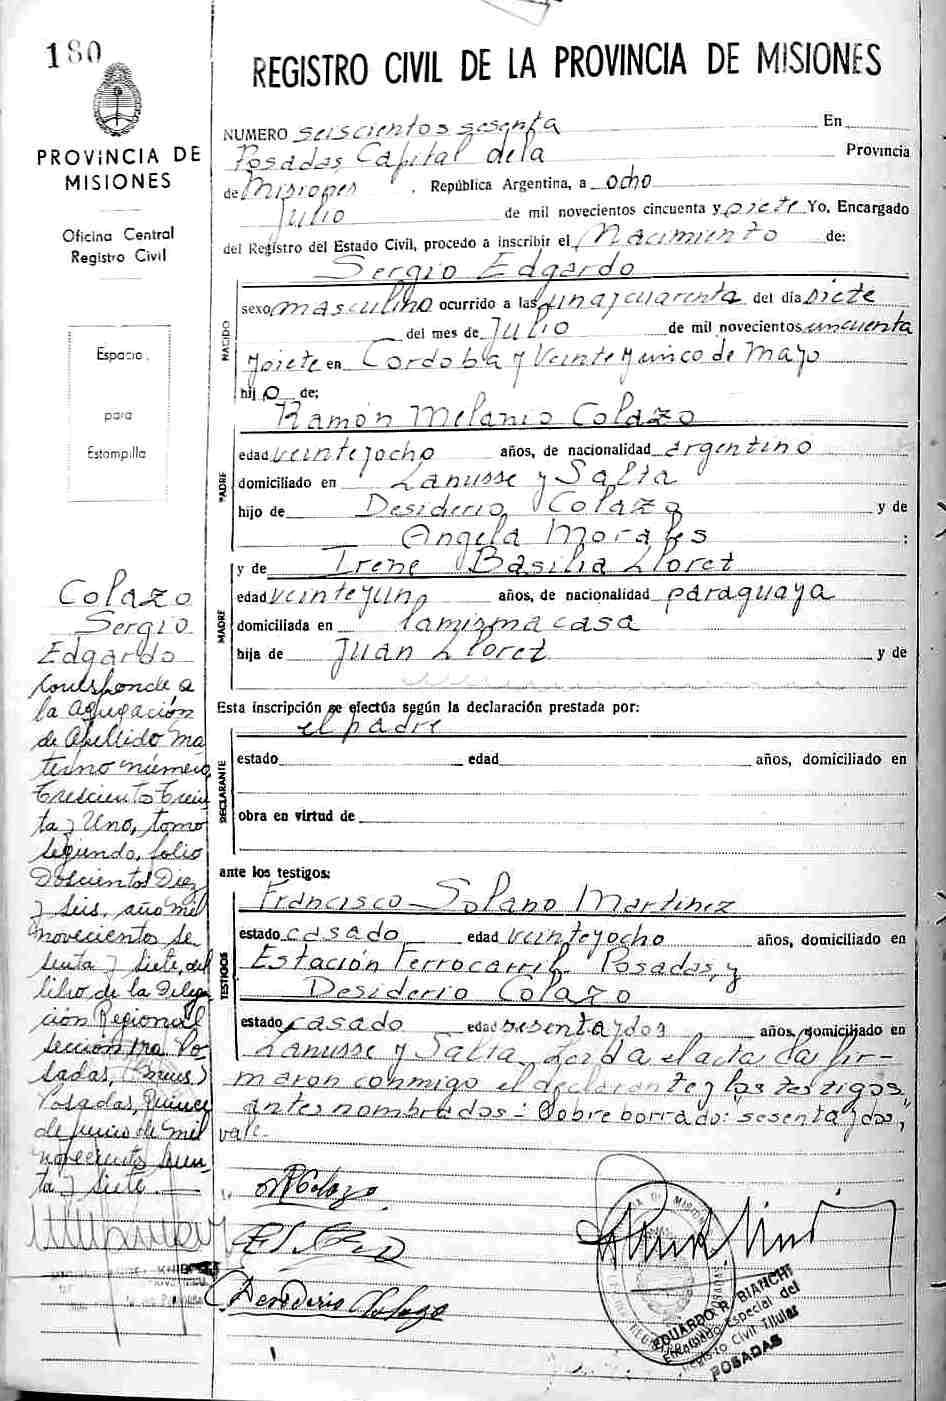 180
PROVINCIA DE
MISIONES
Oficina Central
Registro Civil
Espacio
para
Estampilla
REGISTRO CIVIL DE LA PROVINCIA DE MISIONES
NUMERO seiscientos sesenta En
Posadas, Capital de la Provincia
de Misiones, República Argentina, a ocho
Julio de mil novecientos cincuenta y siete Yo, Encargado
del Registro del Estado Civil, procedo a inscribir el Nacimiento de:
Sergio Edgardo
NACIDO
sexo masculino ocurrido a las una y cuarenta del día siete
del mes de Julio de mil novecientos cincuenta
y siete en Cordoba y Veinte y cinco de Mayo
hijo de:
Ramón Melanio Colazo
PADRE
edad veinte y ocho años, de nacionalidad argentino
domiciliado en Lanusse y Salta
hijo de Desiderio Colazo y de
Angela Morales ;
y de Irene Basilia Lloret
MADRE
edad veinte y uno años, de nacionalidad paraguaya
domiciliada en la misma casa
hija de Juan Lloret y de
Esta inscripción se efectúa según la declaración prestada por:
el padre
DECLARANTE
estado edad años, domiciliado en
obra en virtud de
ante los testigos:
Francisco Solano Martinez
TESTIGOS
estado casado edad veinte y ocho años, domiciliado en
Estación Ferrocarril Posadas, y
Desiderio Colazo
estado casado edad sesenta y dos años, domiciliado en
Lanusse y Salta. Leída el acta la fir-
maron conmigo el declarante y los testigos
antes nombrados - Sobre borrado: "sesenta y dos",
vale.
Colazo
Sergio
Edgardo
Corresponde a
la Agregación
de Apellido Ma
terno número
Trescientos Trein
ta y Uno, tomo
segundo, folio
Doscientos Diez
y seis, año mil
novecientos se
senta y siete, del
libro de la Delega
ción Regional
sección 1ra Po
sadas, (Mnes)
Posadas, Quince
de junio de mil
novecientos sesen
ta y siete.
RColazo
Desiderio Colazo
EDUARDO R. BIANCHI
Encargado Especial del
Registro Civil Titular
POSADAS